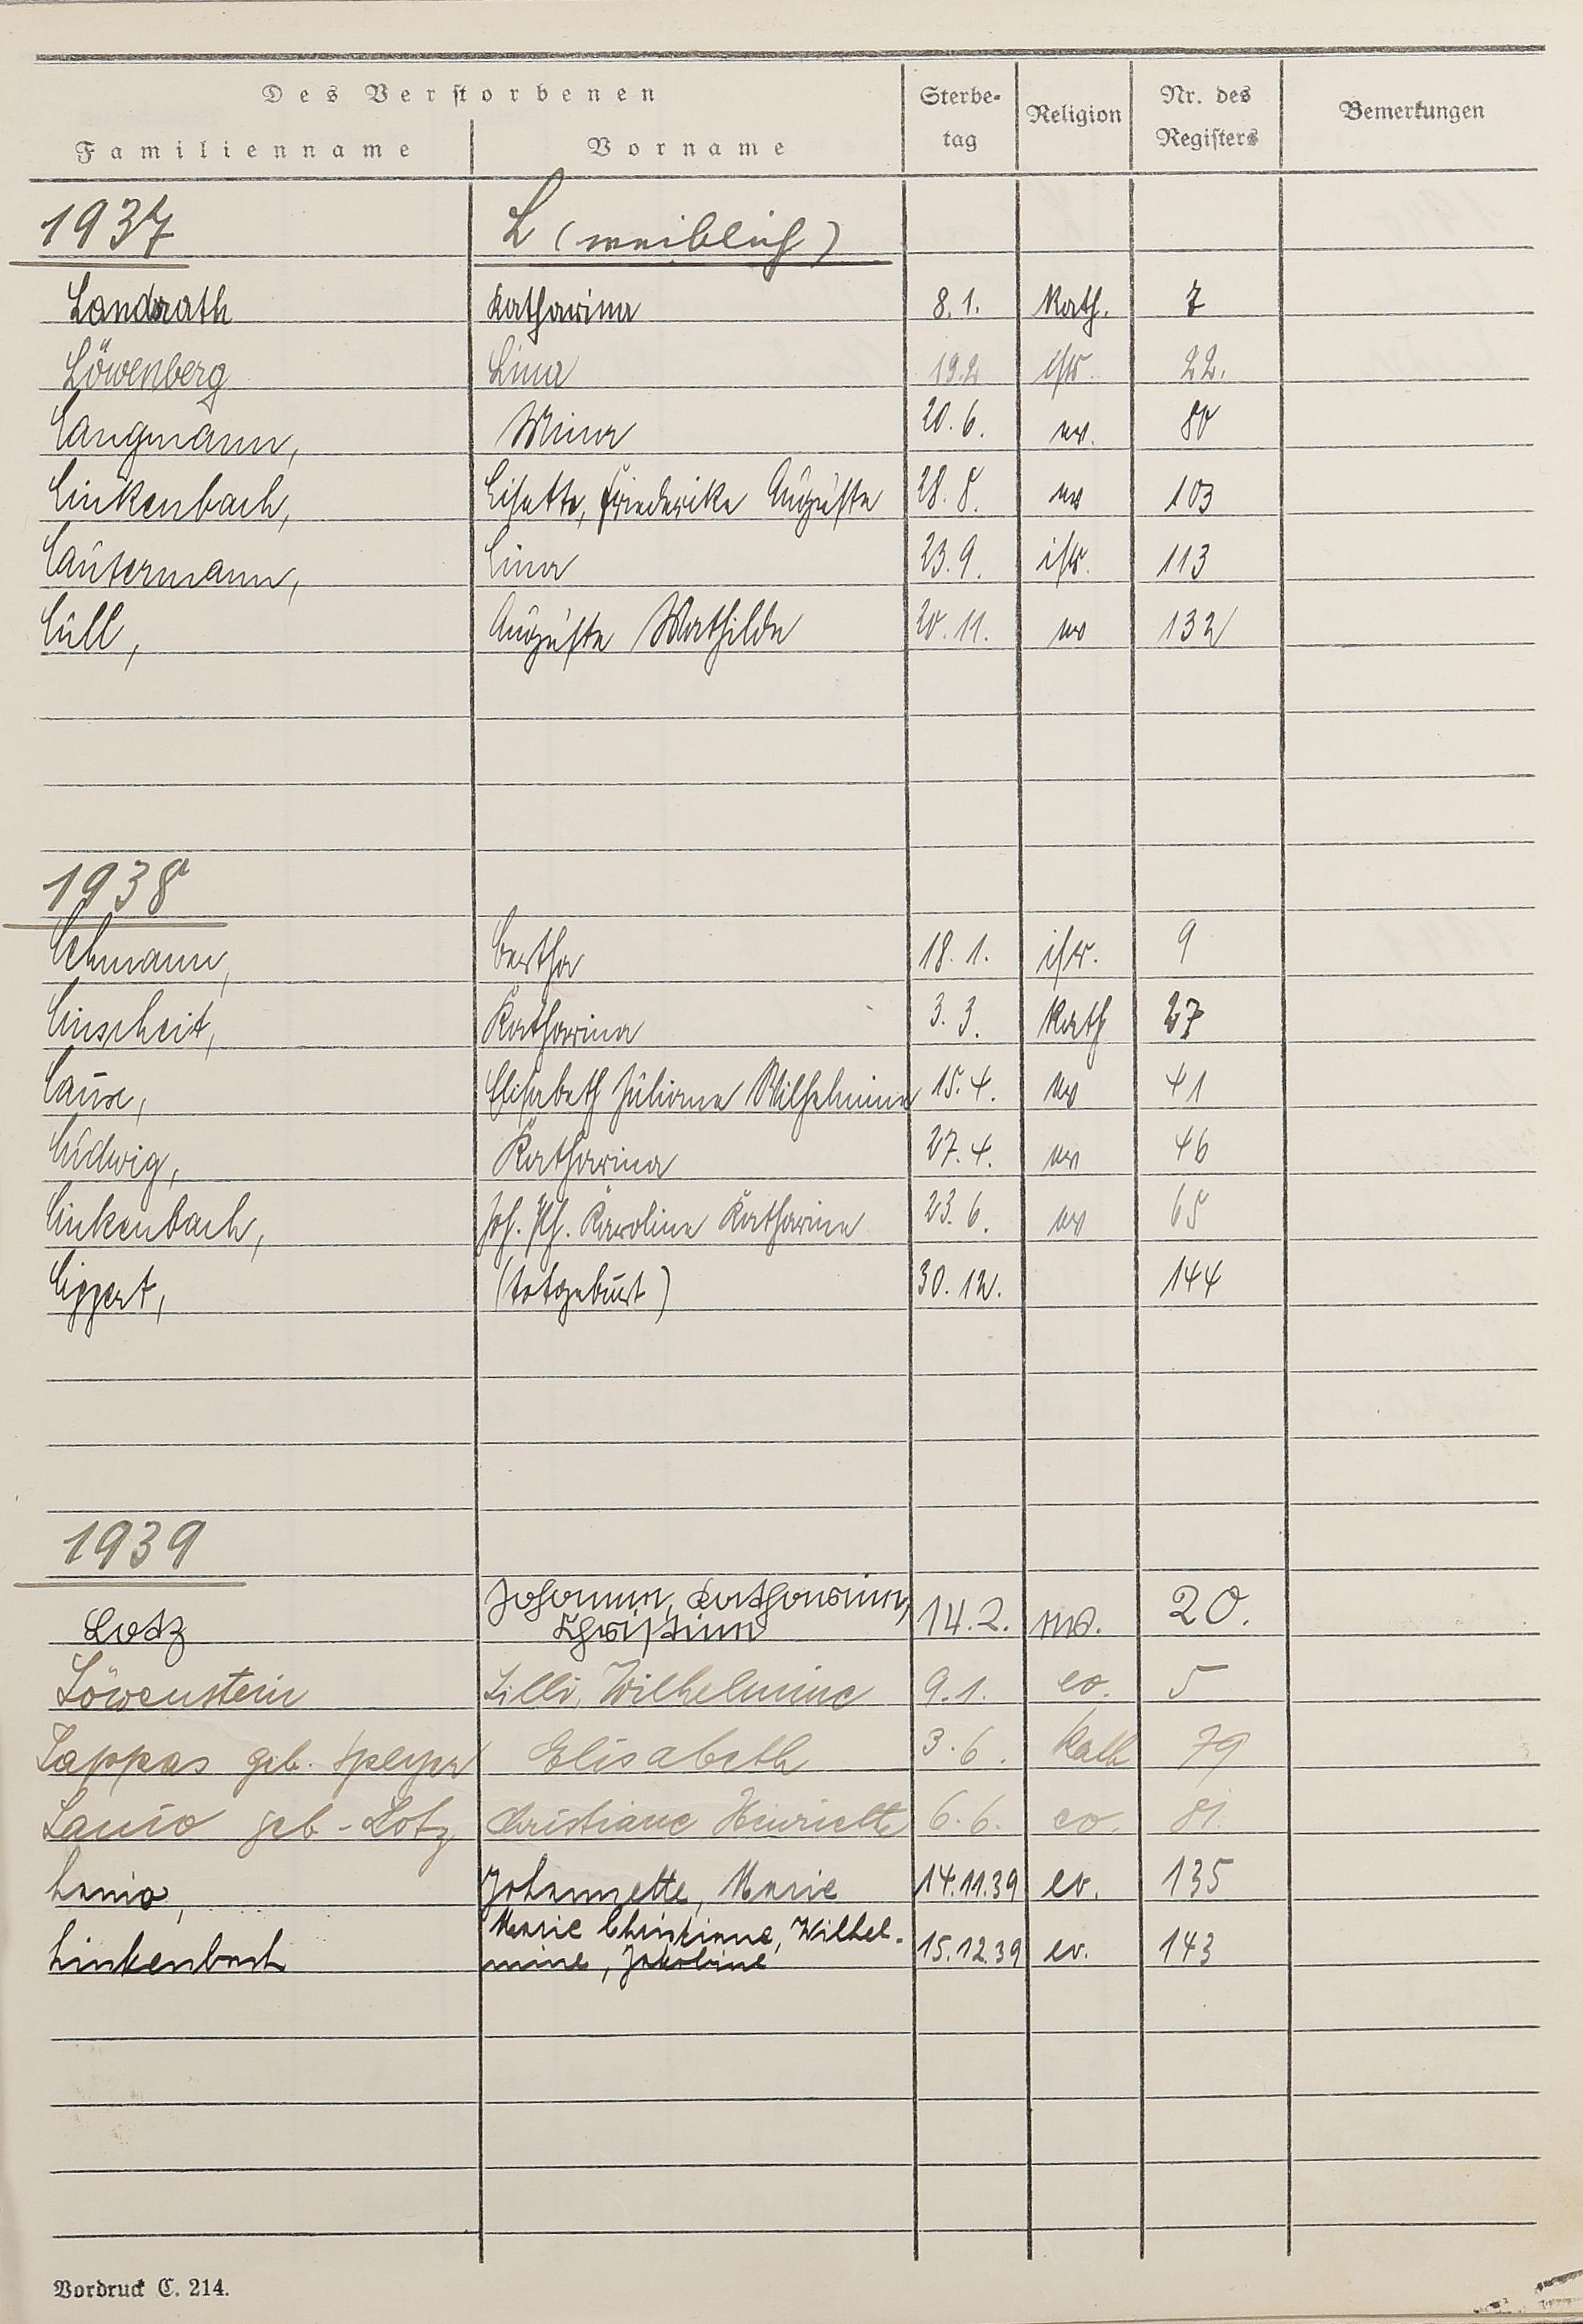 Des Verstorbenen
Sterbe-
tag
Religion
Nr. des
Registers
Bemerkungen
Familienname Vorname
1937 L (weiblich)
Landrath Katharina 8.1. Kath. 7
Löwenberg Lina 19.2 isr. 22.
Langmann, Mina 20.6. ev. 80
Linkenbach, Lisette, Friederike Auguste 28.8. ev 103
Lautermann, Lina 23.9. isr. 113
Lüll, Auguste Mathilde 20.11. ev 132
1938
Lehmann, Bertha 18.1. isr. 9
Linscheit, Katharina 3.3. Kath 27
Laux, Elisabeth Juliane Wilhelmine 15.4. ev 41
Ludwig, Katharina 27.4. ev 46
Linkenbach, Joh. Ph. Karoline Katharine 23.6. ev 65
Lippert, (totgeburt) 30.12. 144
1939
Lotz Johanna, Katharina, Christina 14.2. ev. 20.
Löwenstein Lilli, Wilhelmine 9.1. ev. 5
Lappas geb. Speyer Elisabeth 3.6. Kath 79
geb. Lotz Christiane Henriette 6.6. ev. 81.
Johannette, Marie 14.11.39 ev. 135
Linkenbach Marie Christiane, Wilhel-
mine, Jakobine 15.12.39 ev. 143
Vordruck C. 214.